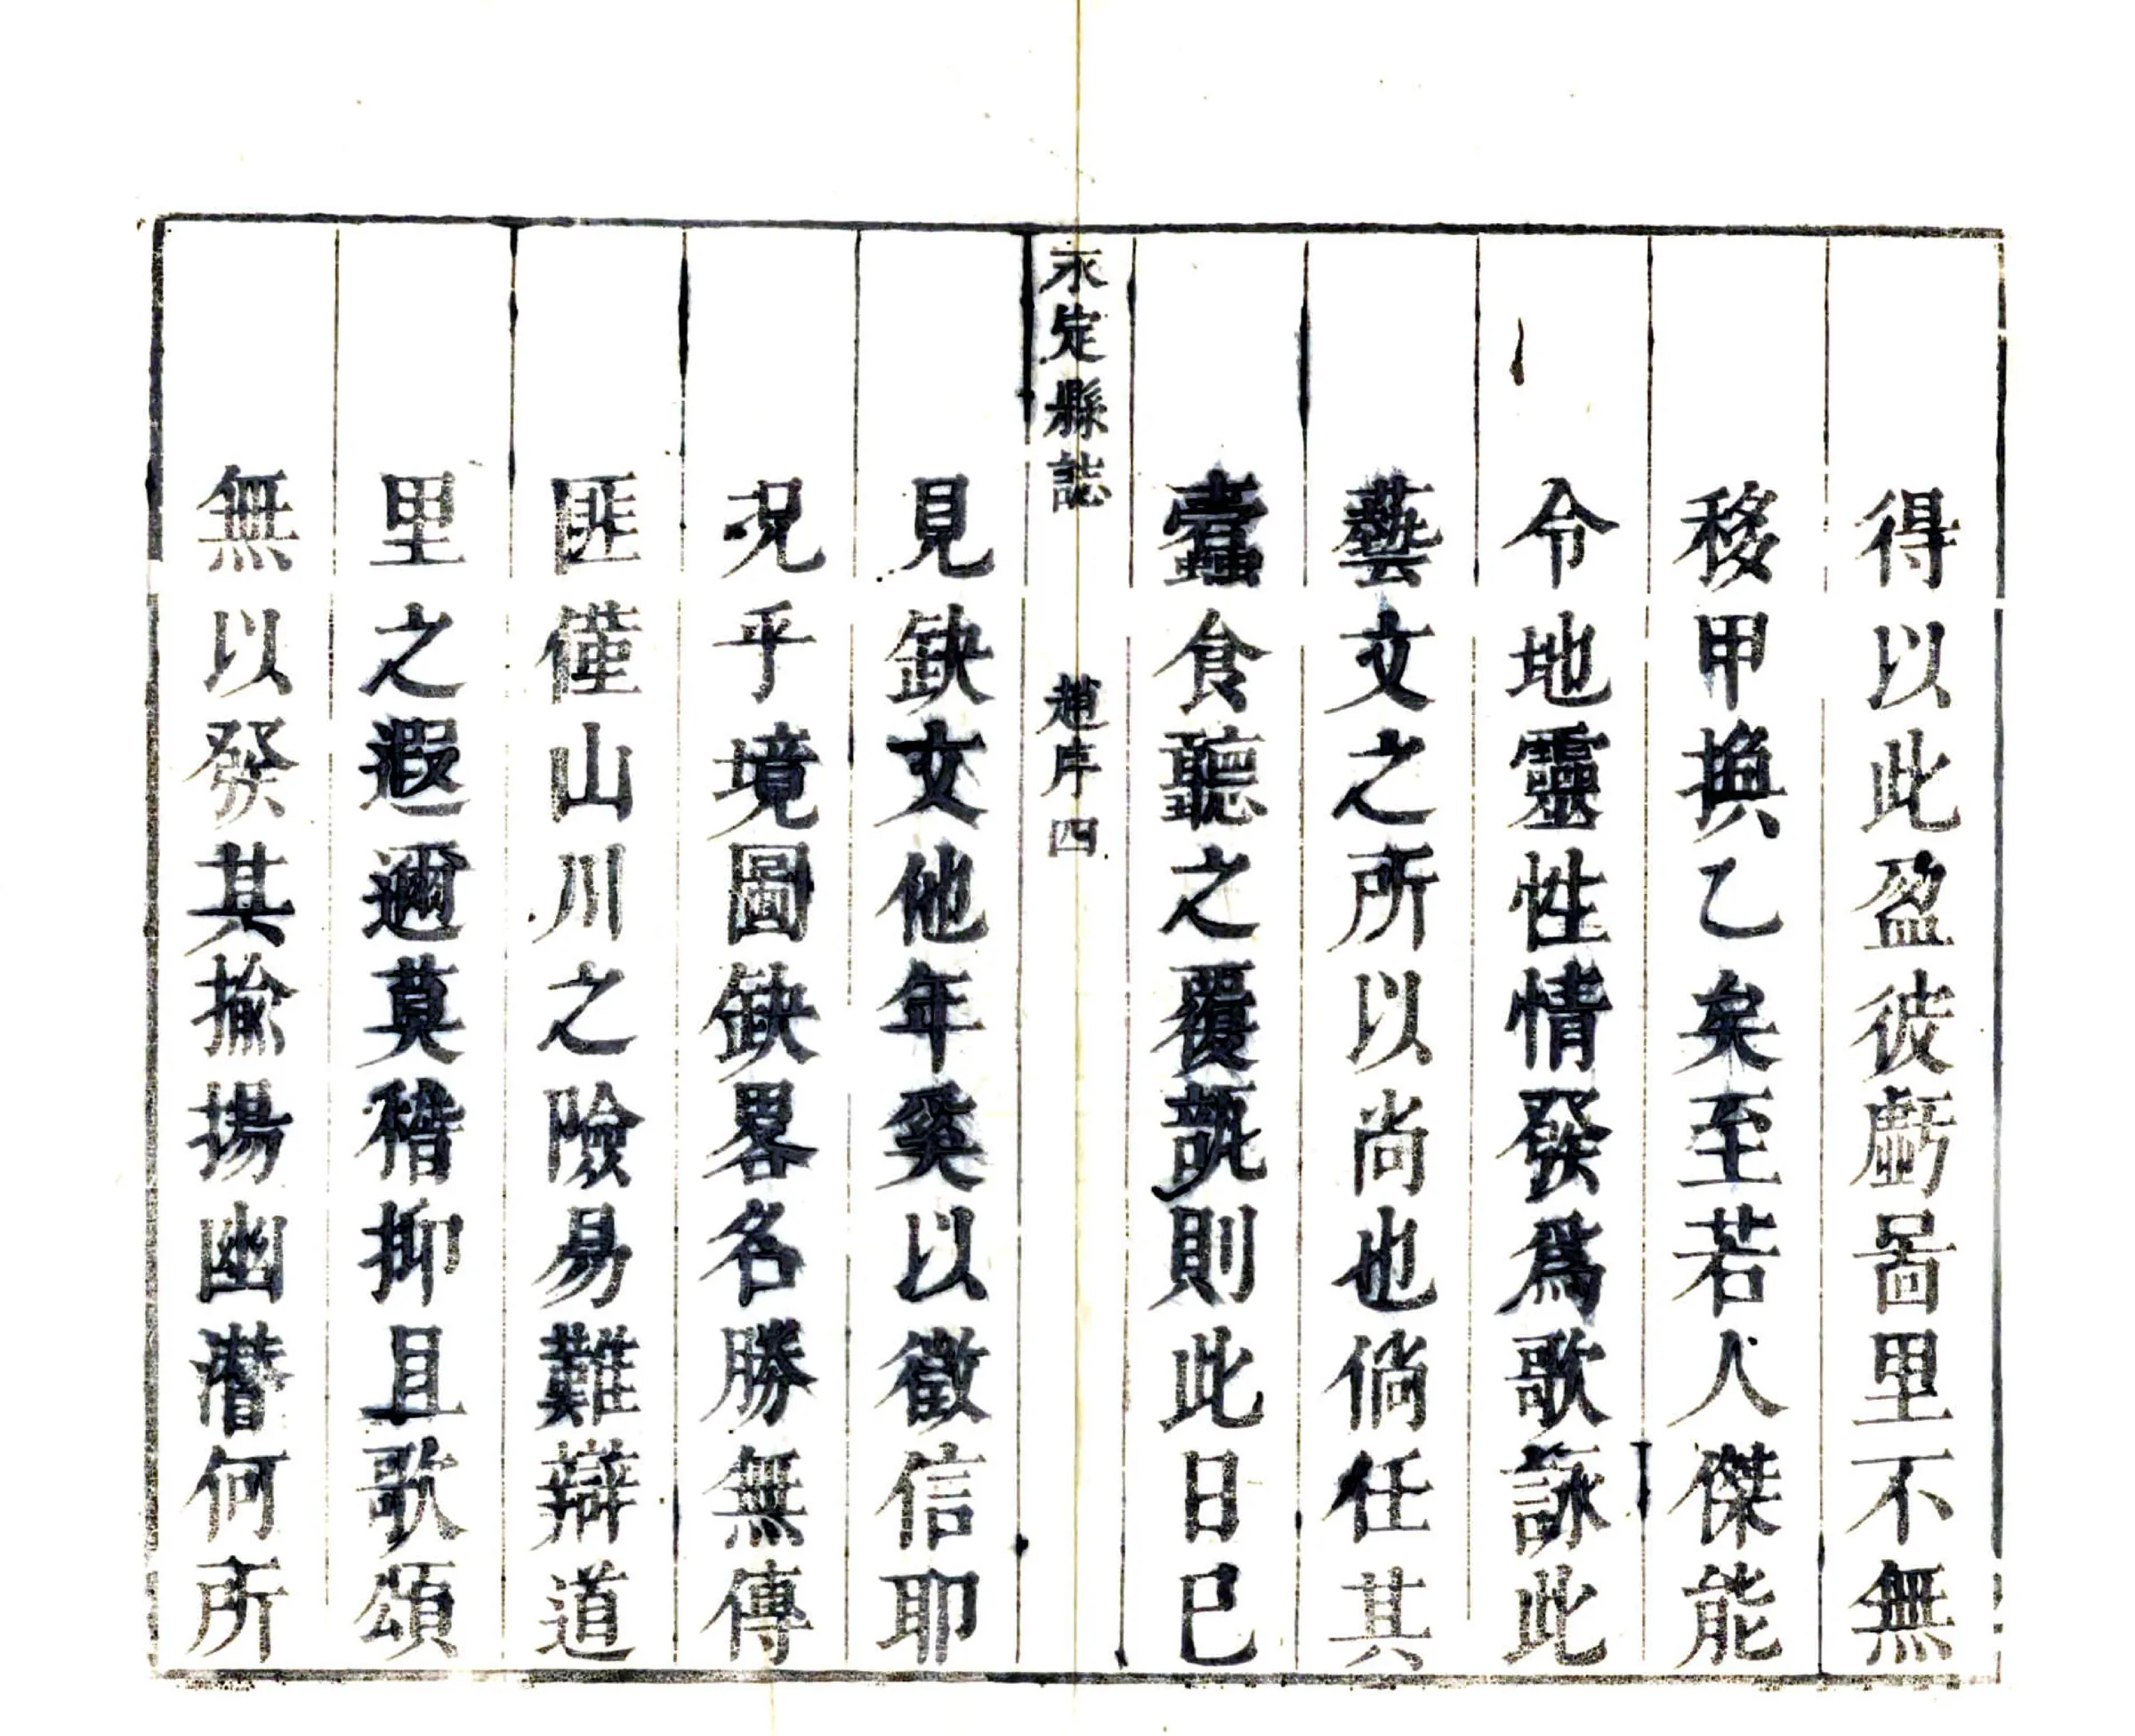 得以此盈彼虧啚里不無
移甲換乙矣至若人傑能
令地靈性情發爲歌詠此
藝文之所以尚也倘任其
蠹食聽之覆瓿則此日巳
永定縣誌
趙序四
見缺文他年奚以徵信耶
况乎境圖缺畧名勝無傳
匪僅山川之險易難辯道
里之遐邇莫稽抑且歌頌
無以發其揄揚幽潛何所